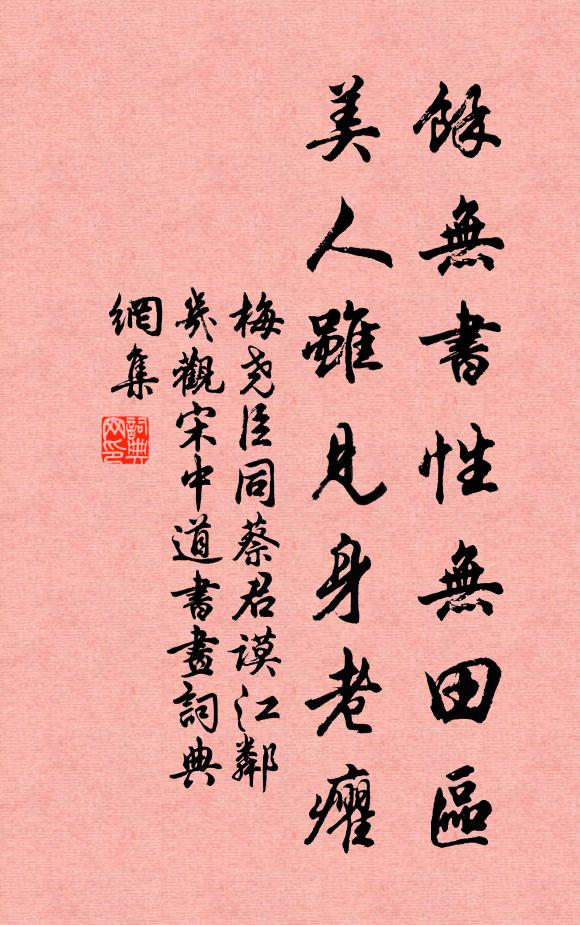 餘無書性無田區
美人雖見身老癯
梅尧臣同蔡君謨江鄰
幾觀宋中道書畫詞典
網集
詞典网印